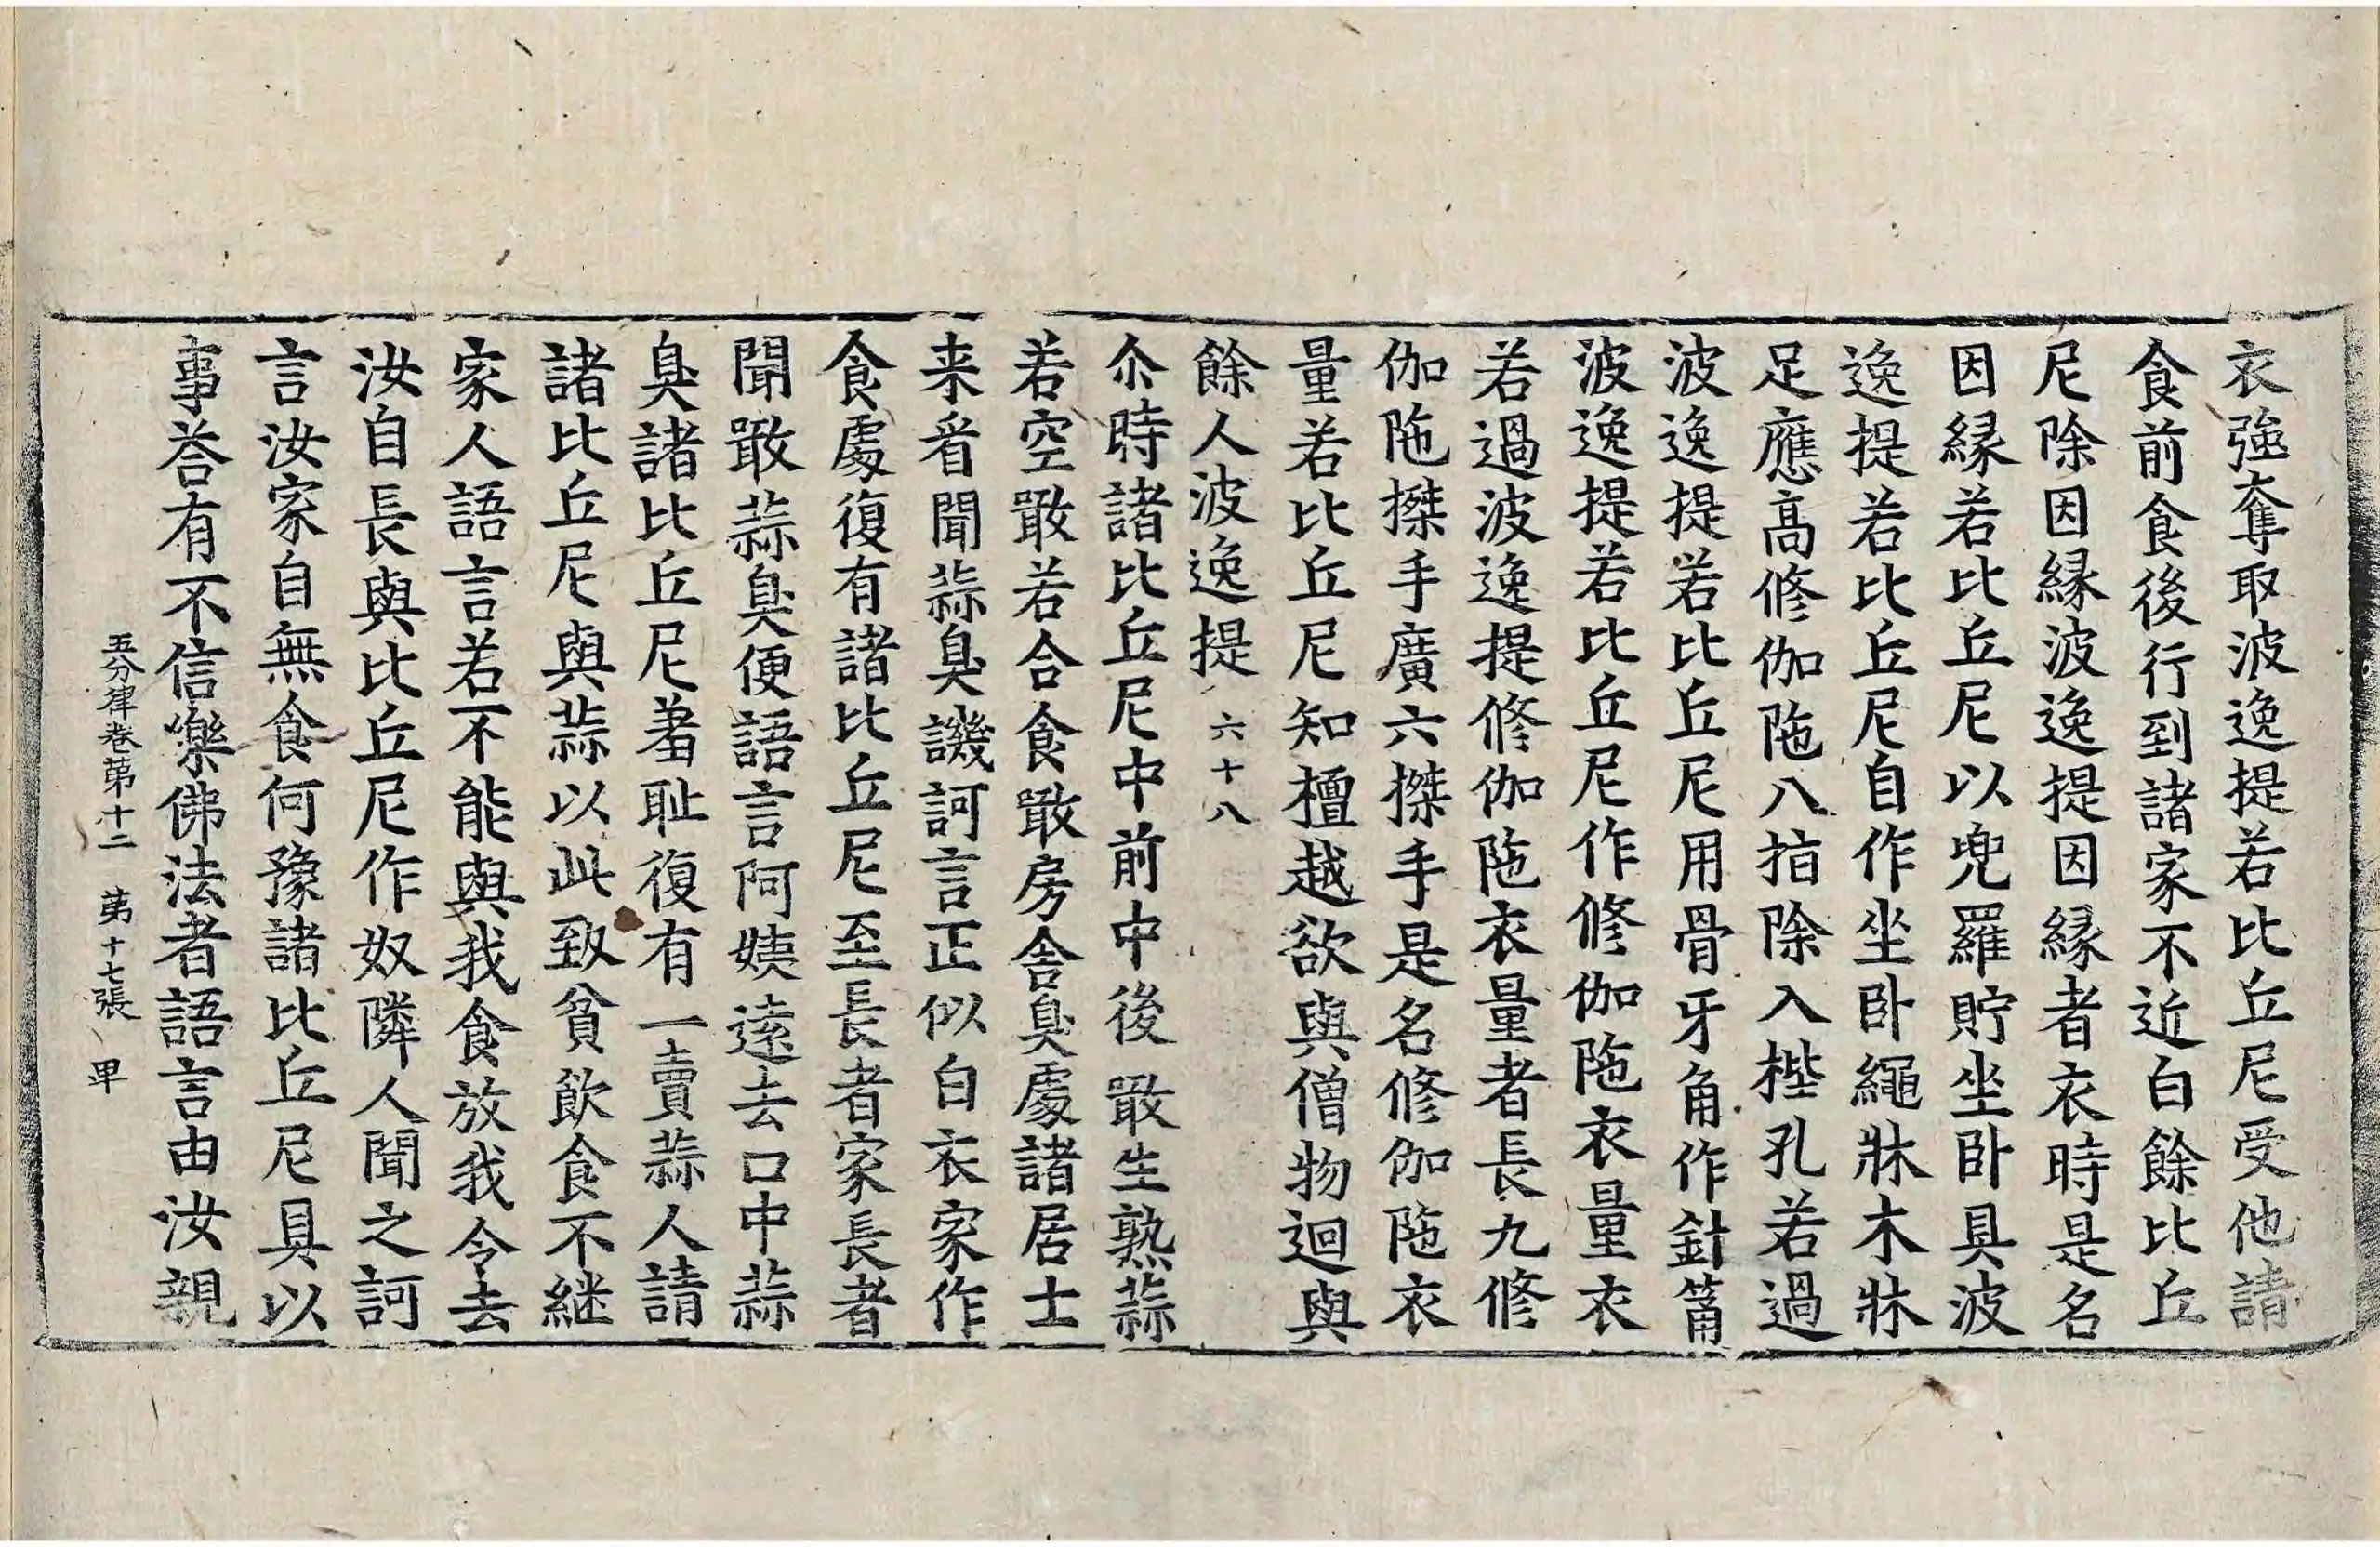 衣強奪取波逸提若比丘尼受他請
食前食後行到諸家不近白餘比丘
尼除因縁波逸提因縁者衣時是名
因縁若比丘尼以兜羅貯坐卧具波
逸提若比丘尼自作坐卧繩牀木牀
足應高修伽陁八指除入梐孔若過
波逸提若比丘尼用骨牙角作針筩
波逸提若比丘尼作修伽陁衣量衣
若過波逸提修伽陁衣量者長九修
伽陁搩手廣六搩手是名修伽陁衣
量若比丘尼知檀越欲與僧物迴與
餘人波逸提 六十八
尒時諸比丘尼中前中後噉生熟蒜
若空噉若合食噉房舎臭處諸居士
来看聞蒜臭譏訶言正似白衣家作
食處復有諸比丘尼至長者家長者
聞噉蒜臭便語言阿姨遠去口中蒜
臭諸比丘尼羞耻復有一賣蒜人請
諸比丘尼與蒜以此致貧飲食不継
家人語言若不能與我食放我令去
汝自長與比丘尼作奴隣人聞之訶
言汝家自無食何豫諸比丘尼具以
事荅有不信樂佛法者語言由汝親
五分律卷苐十二 苐十七張 卑